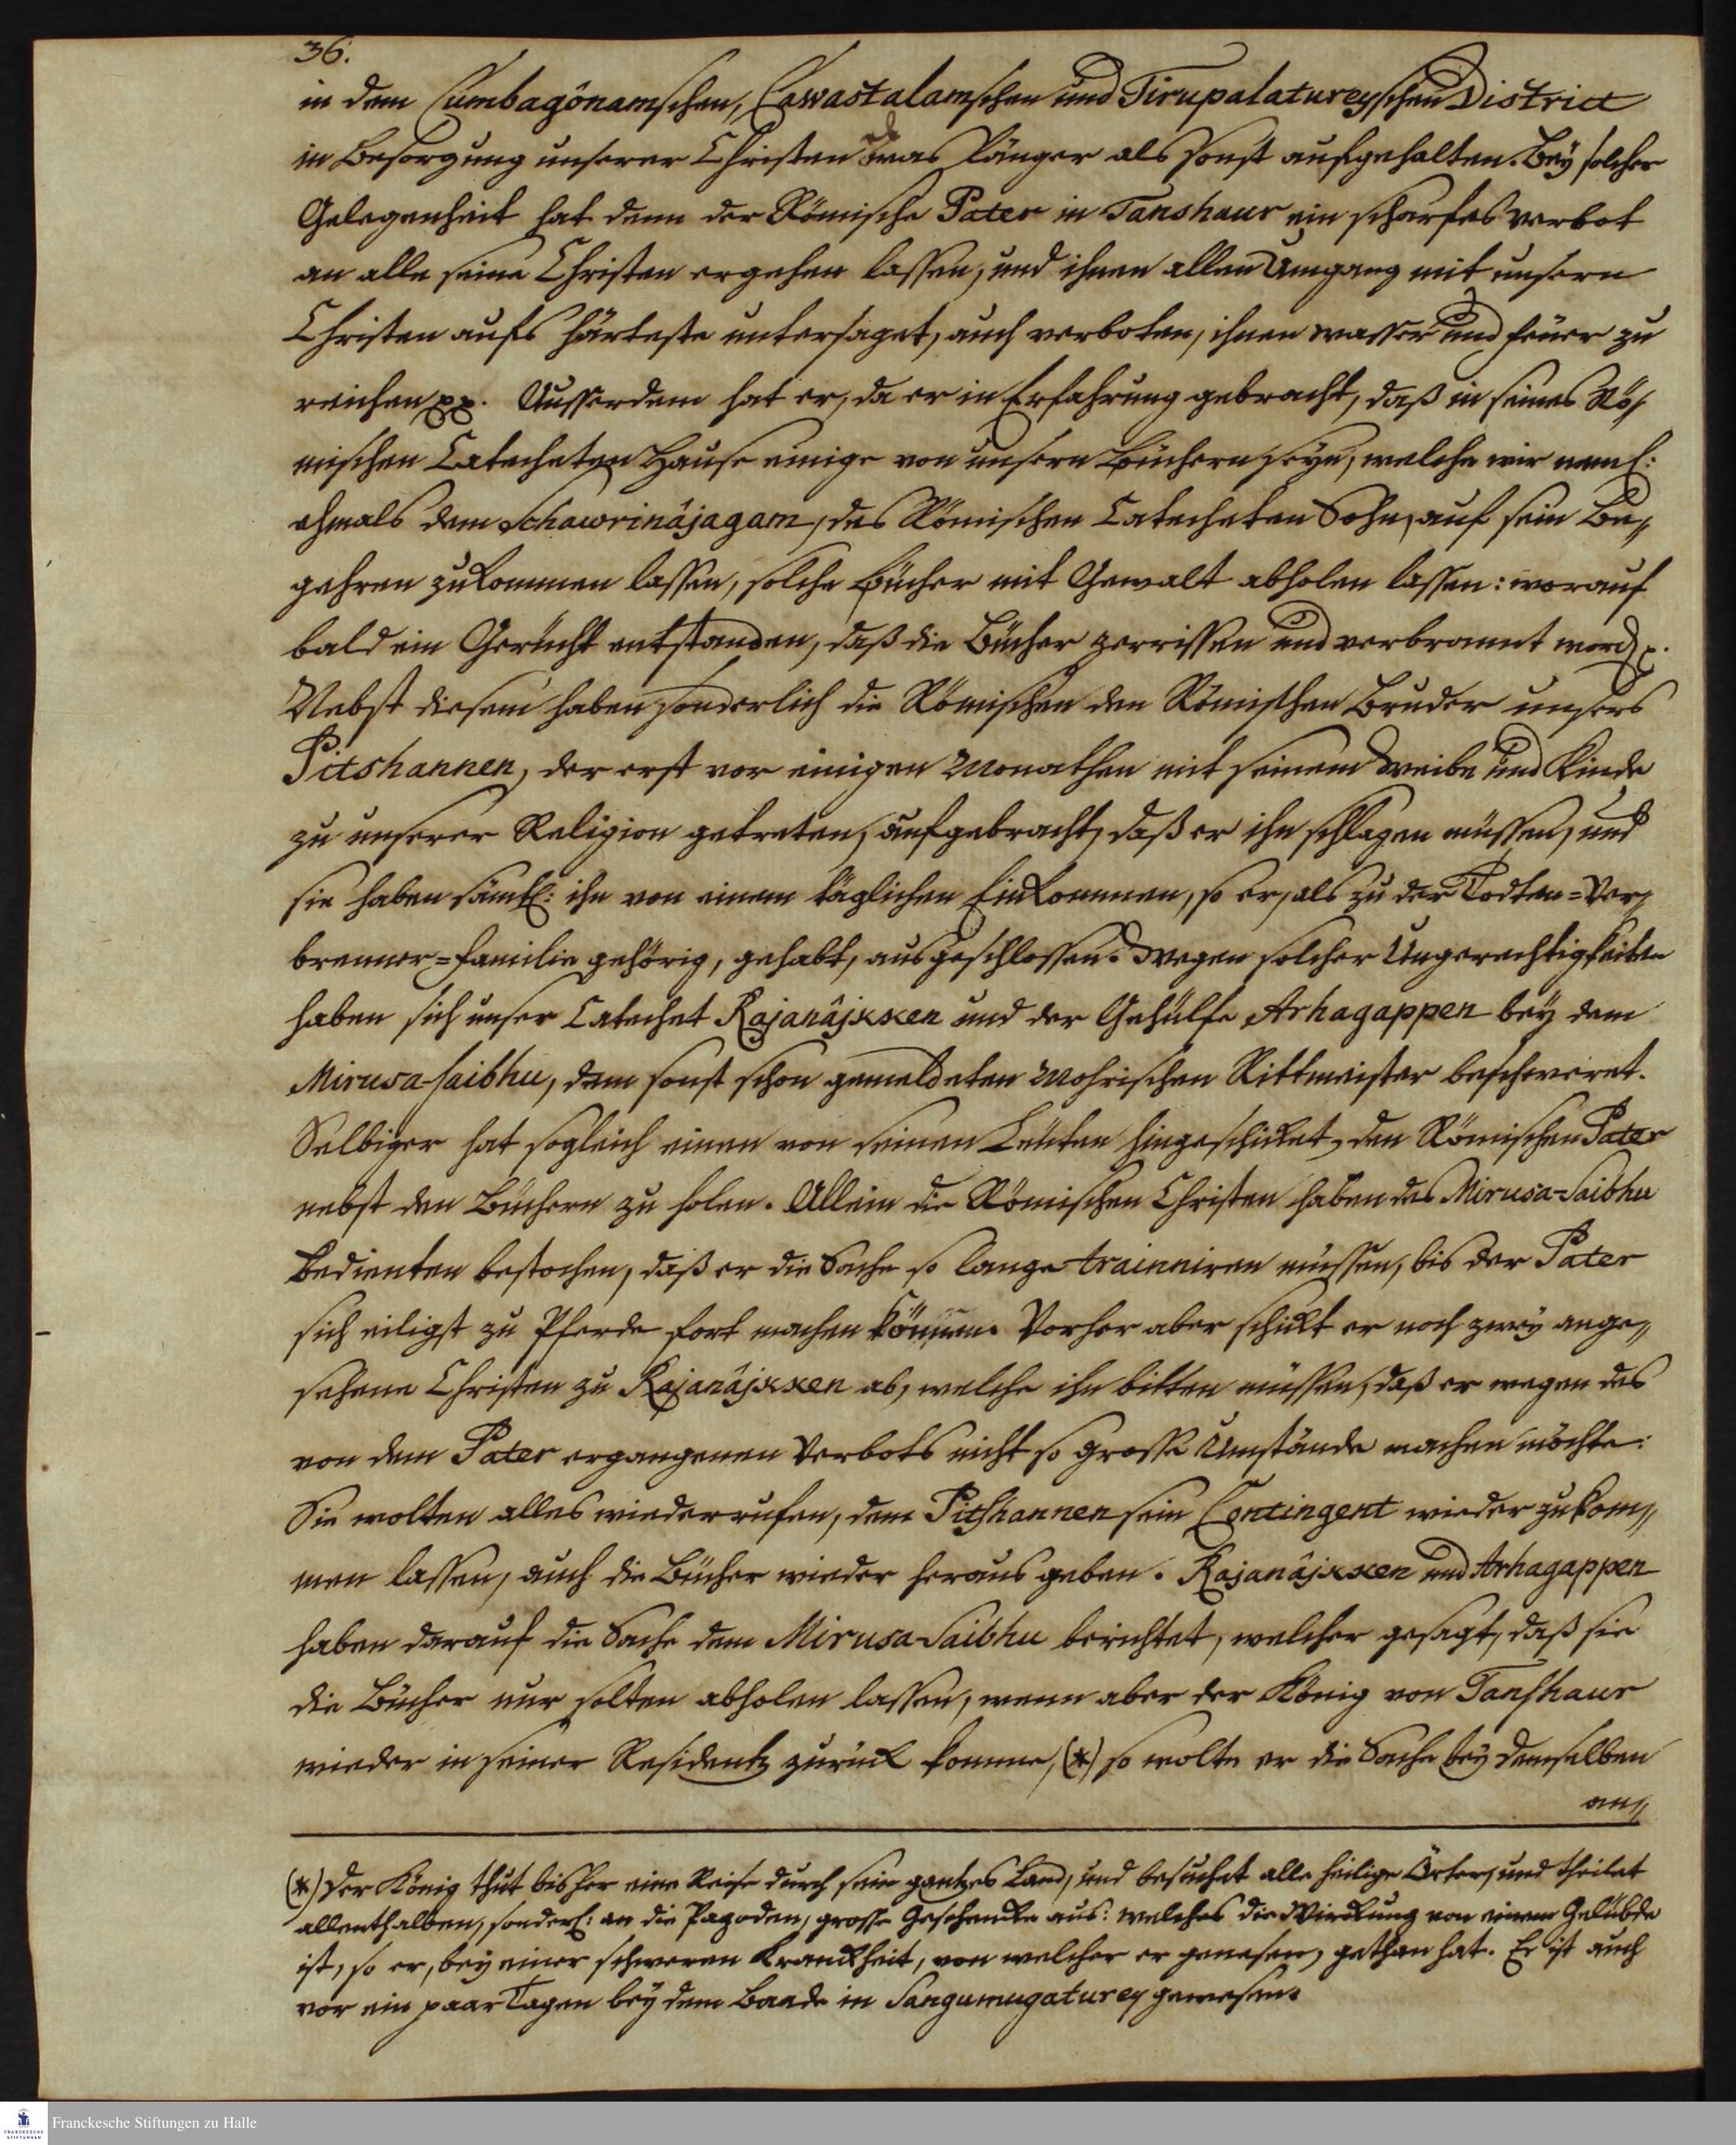 36.
in dem Cumbagönamschen, Cawastalamschen und Tirupalatureyschen District
in Besorgung unserer Christen was länger als sonst aufgehalten. Bey solcher
Gelegenheit hat denn der Römische Pater in Tanshaur ein scharfes verbot
an alle seine Christen ergehen lassen, und ihnen allen Umgang mit unsern
Christen aufs härteste untersaget, auch verboten, ihnen wasser und feuer zu
reichen pp. Ausserdem hat er, da er in Erfahrung gebracht, daß in seines Rö-
mischen Catecheten Hause einige von unsern Büchern seyn, welche wir neml:
ehmals dem Schawrinâjagam, des Römischen Catecheten Sohn, auf sein Be-
gehren zukommen lassen, solche Bücher mit Gewalt abholen lassen: worauf
bald ein Gerücht entstanden, daß die Bücher zerrissen und verbrannt word p.
Nebst diesem haben sonderlich die Römischen den Römischen Bruder unsers
Pitshannen, der erst vor einigen Monathen mit seinem Weibe und Kinde
zu unserer Religion getreten, aufgebracht, daß er ihn schlagen müssen, und
sie haben sämtl: ihn von einem täglichen Einkommen, so er, als zu der Todten=Ver-
brenner=familie gehörig, gehabt, ausgeschlossen. Wegen solcher Ungerechtigkeiten
haben sich unser Catechet Rajanâjxxen und der Gehülfe Arhagappen bey dem
Mirusa-saibhu, dem sonst schon gemeldeten Mohrischen Rittmeister beschweret.
Selbiger hat sogleich einen von seinen Leuten hingeschicket, den Römischen Pater
nebst den Büchern zu holen. Allein die Römischen Christen haben des Mirusa-Saibhu
Bedienten bestochen, daß er die Sache so lange trainniren müssen, bis der Pater
sich eiligst zu Pferde fort machen können. Vorher aber schickt er noch zwey ange-
sehene Christen zu Rajanâjxxen ab, welche ihn bitten müssen, daß er wegen des
von dem Pater ergangenen Verbots nicht so grosse Umstände machen möchte:
Sie wolten alles wiederrufen, dem Pitshannen sein Contingent wieder zukom-
men lassen, auch die Bücher wieder heraus geben. Rajanâjxxen und Arhagappen
haben darauf die Sache dem Mirusa-Saibhu berichtet, welcher gesagt, daß sie
die Bücher nur solten abholen lassen, wenn aber der König von Tanshaur
wieder in seiner Residentz zurück komme, (*) so wolte er die Sache bey demselben
an-
(*) Der König thut bisher eine Reise durch sein gantzes Land, und besuchet alle heilige Örter, und theilet
allenthalben, sonderl: an die Pagoden, grosse Geschencke aus: welches die Wirckung von einem Gelübde
ist, so er, bey einer schweren Kranckheit, von welcher er genesen, gethan hat. Er ist auch
vor ein paar Tagen bey dem Baade in Sangumugaturey gewesen.
Franckesche Stiftungen zu Halle
FRANCKESCHE
STIFTUNGEN